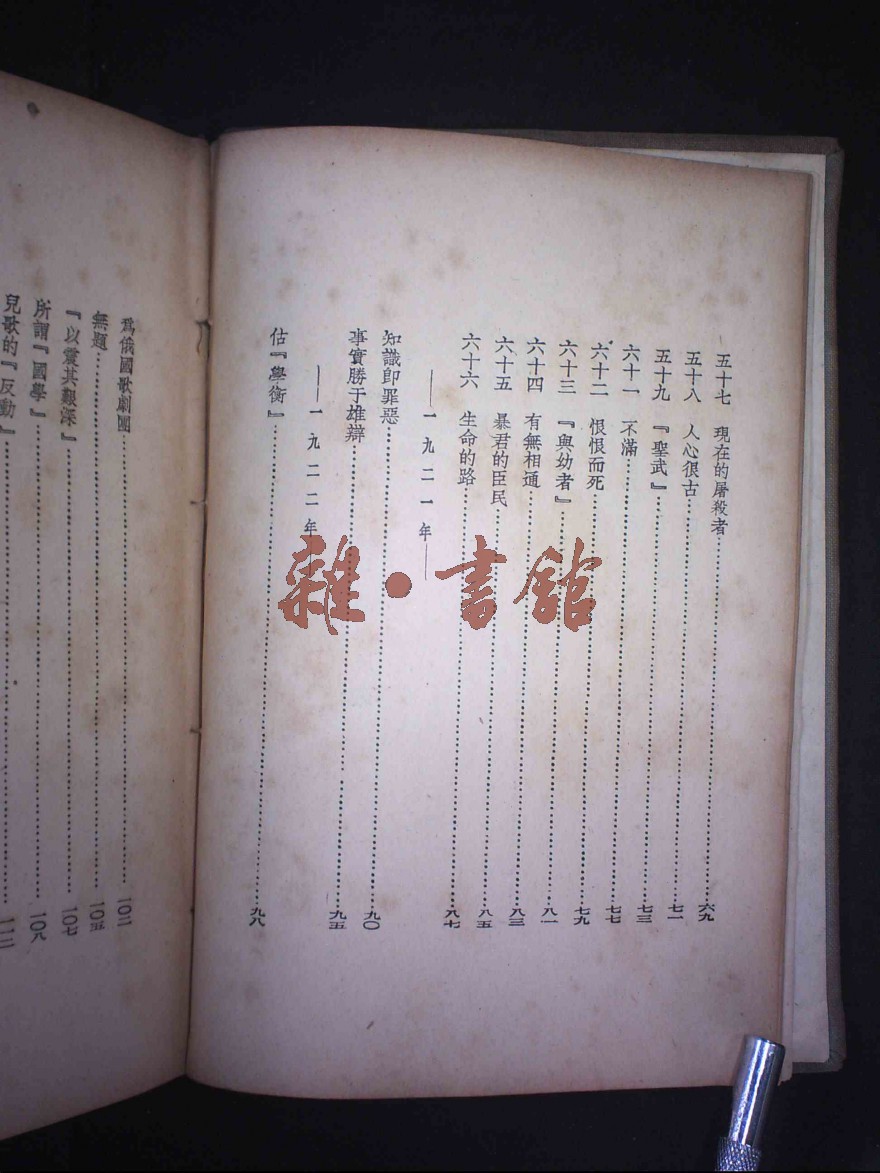 五十七 現在的屠殺者……六九
五十八 人心很古……七一
五十九 『聖武』……七三
六十一 不滿……七七
六十二 恨恨而死……七九
六十三 『與幼者』……八一
六十四 有無相通……八三
六十五 暴君的臣民……八五
六十六 生命的路……八七
——一九二一年——
知識卽罪惡……九〇
事實勝于雄辯……九五
——一九二二年——
估『學衡』……九八
爲俄國歌劇團……一〇二
無題……一〇五
『以震其艱深』……一〇七
所謂『國學』……一〇八
兒歌的『反動』……一一二
雜·書館